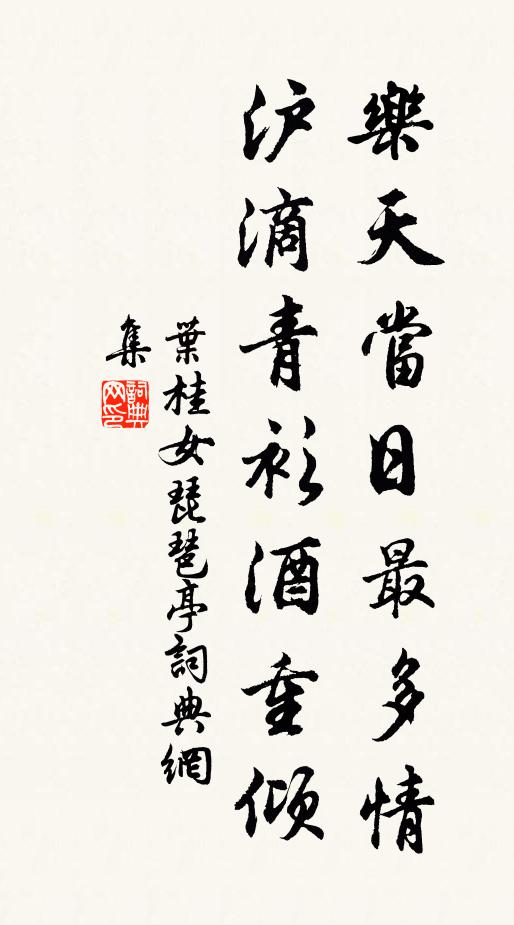 樂天當日最多情
沪滴青衫酒重傾
葉桂女琵琶亭詞典網
集
詞典網印